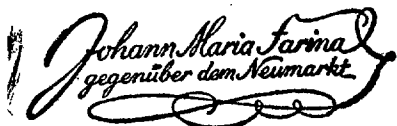 Johann Maria Farina
gegenüber dem Neumarkt